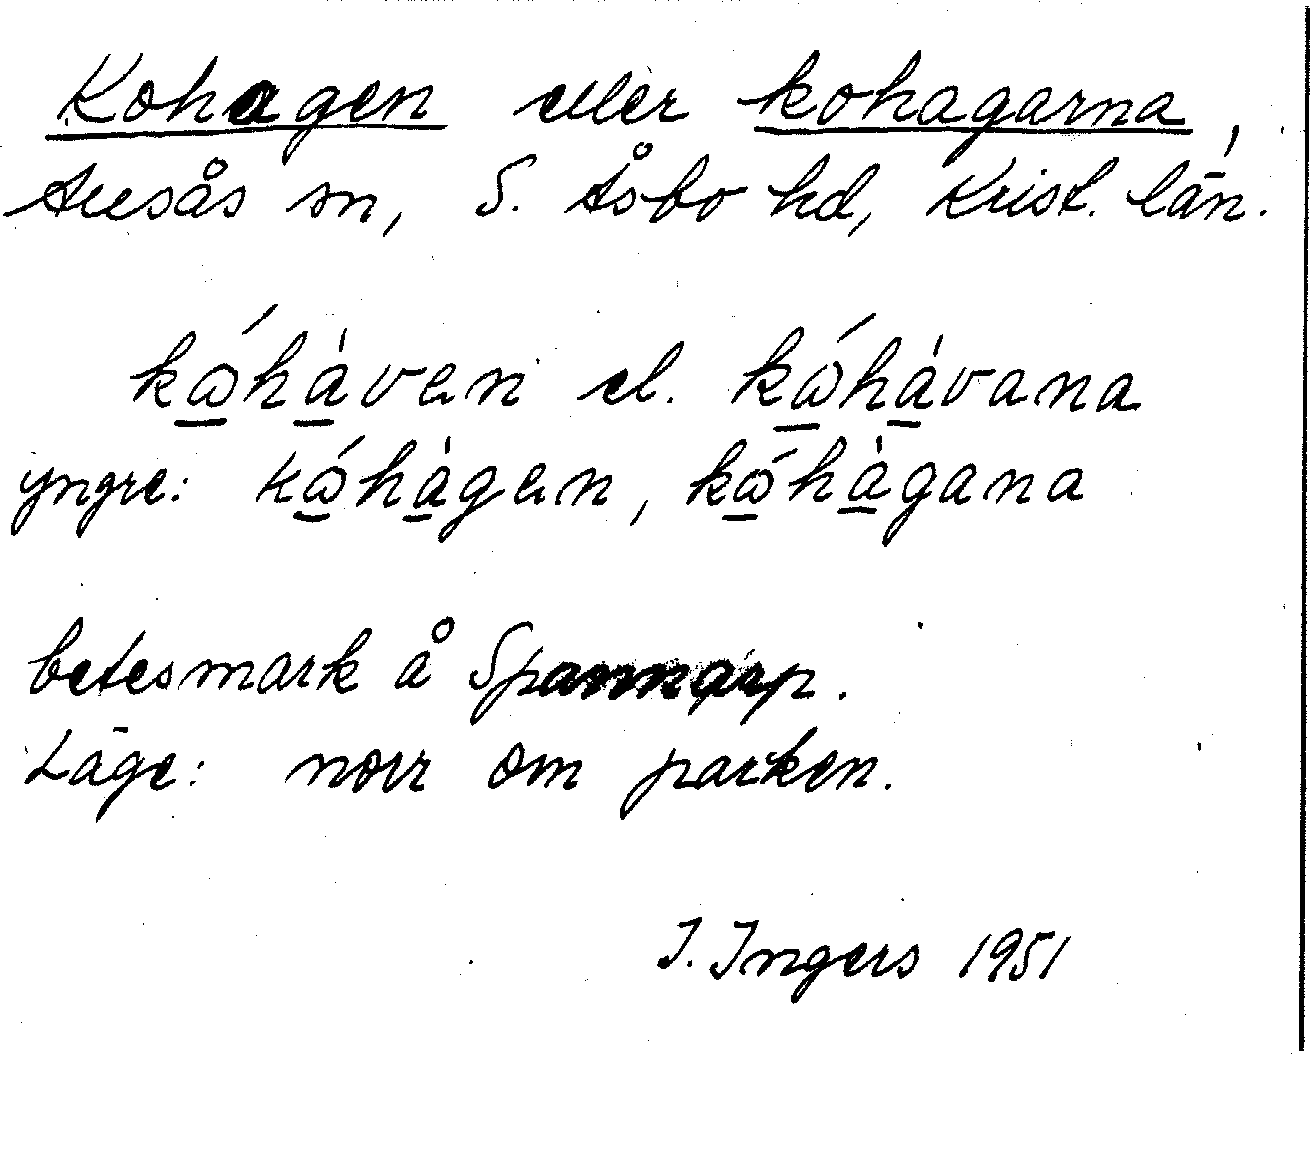 Kohagen eller kohagarna,
Ausås sn, S. Åsbo hd, Krist. län.
kώ̲hà̲ven el. kώ̲hà̲vana
yngre: kώ̲hà̲gen, kώ̲hà̲gana
betesmark å Spannarp.
Läge: norr om parken.
I. Ingers 1951